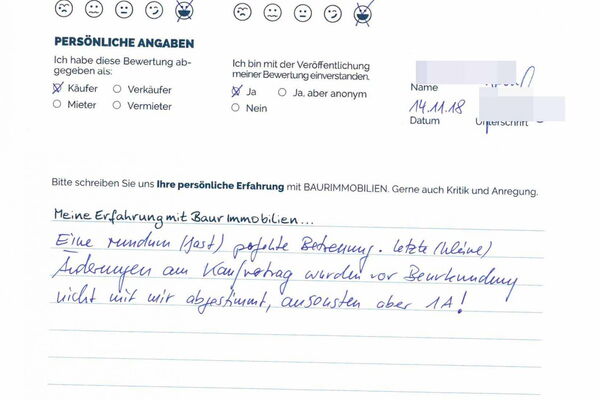 PERSÖNLICHE ANGABEN
Ich habe diese Bewertung ab-
gegeben als:
Käufer Verkäufer
Mieter Vermieter
Ich bin mit der Veröffentlichung
meiner Bewertung einverstanden.
Ja Ja, aber anonym
Nein
Name
14.11.18
Datum Unterschrift
Bitte schreiben Sie uns Ihre persönliche Erfahrung mit BAURIMMOBILIEN. Gerne auch Kritik und Anregung.
Meine Erfahrung mit Baur Immobilien...
Eine rundum (fast) perfekte Betreuung. Letzte (kleine)
Änderungen am Kaufvertrag wurden vor Beurkundung
nicht mit mir abgestimmt, ansonsten aber 1A!